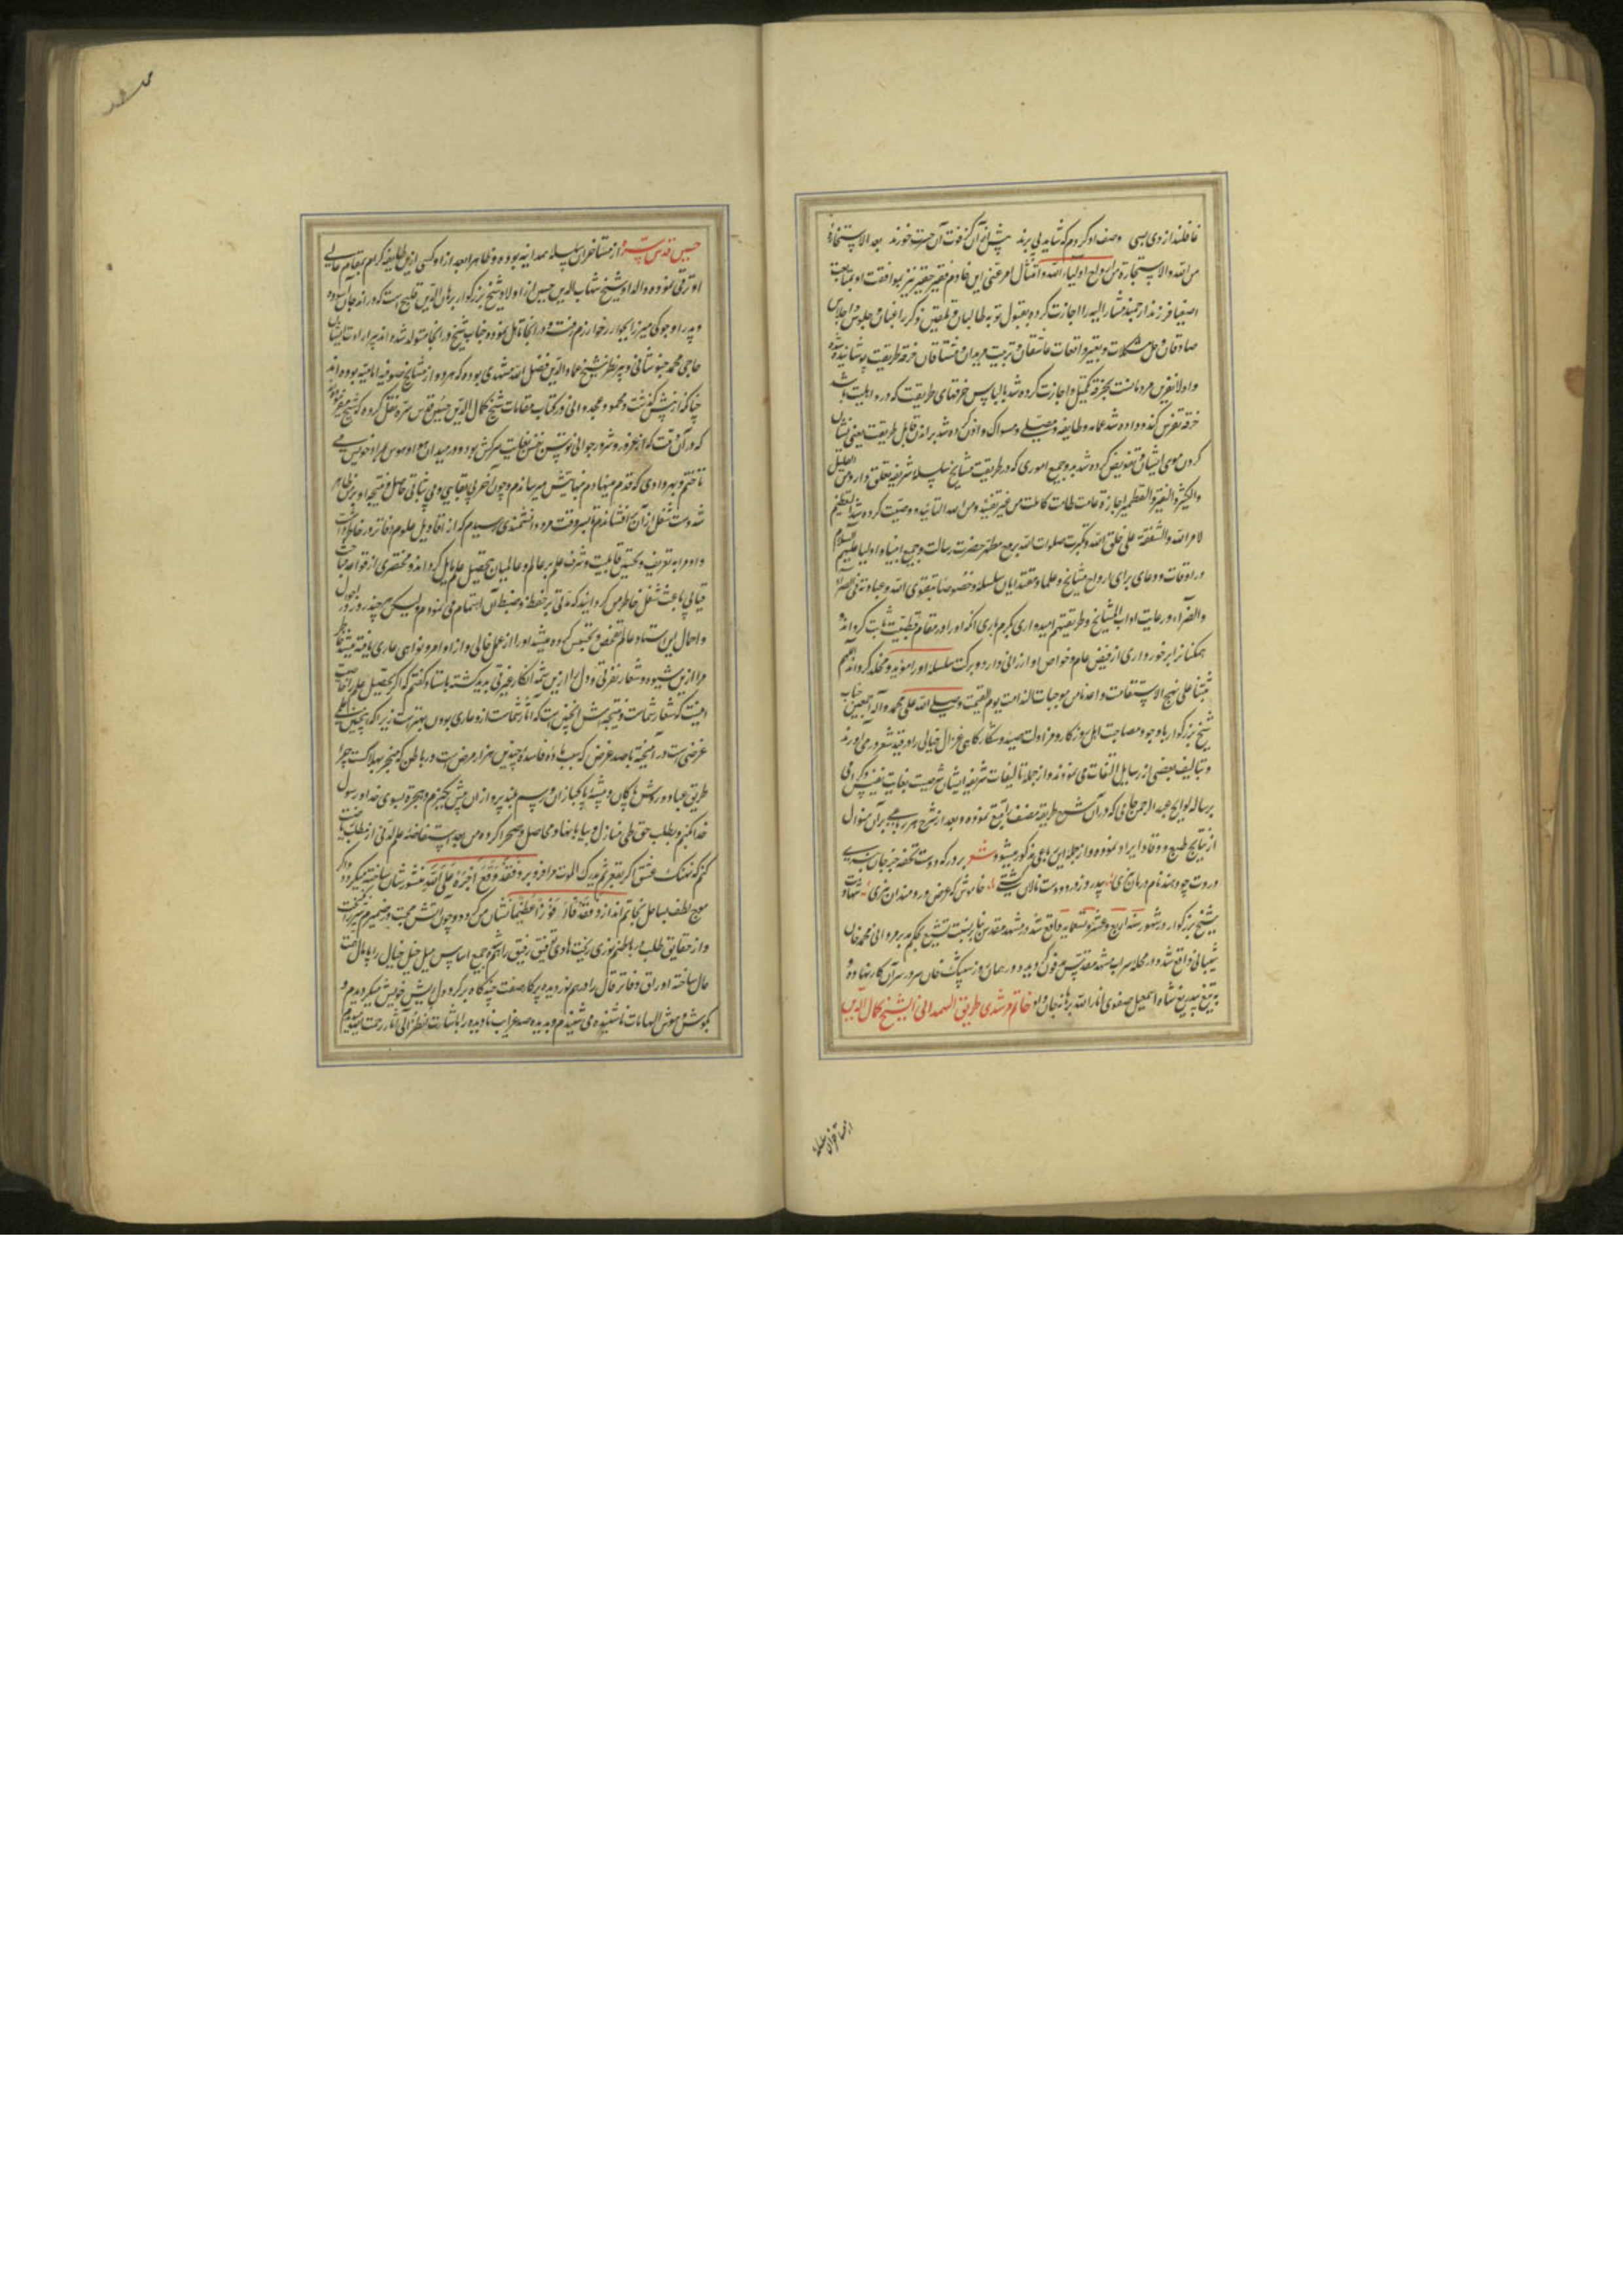 غافلند از وی بسی وصف او کردم که شاید پی برند پیش از آن کز فوت آن حسرت خورند بعد الاستخارة
من الله والاستجازة من ارواح اولیاء الله و امتثال امر غیبی این خادم فقیر حقیر نیز بموافقت او
فرزند ارجمند مشار الیه را اجازت کرده بقبول توبه طالبان و تلقین ذکر راغبان و جلوس و اجلاس
صادقان و حل مشکلات و تعبیر واقعات عاشقان و تربیت مریدان و مشتاقان خرقه طریقت پوشانیده شده
و اجازت کرده شد بالباس خرقهای طریقت که در او اهلیت باشد
خرقه داده شد عمامه و طاقیه و مصلی و مسواک و اذن کرده شد براندن قابل طریقت یعنی نشان
کردن موی ایشان و تفویض کرده شد بدو جمیع اموری که در طریقت مشایخ سلسله شریفه تعلق دارد من القلیل
والکثیر والنقیر والقطمیر اجازة عامة من غیر و من الله التائید و وصیت کرده شد بالتعظیم
لامر الله والشفقة علی خلق الله و تکبیرت صلوات الله بروح مطهر حضرت رسالت و جمیع انبیا و اولیا علیهم السلام
در اوقات و دعای برای ارواح مشایخ و علما و مقتدایان سلسله و خصوصا بتقوی الله و عبادته فی السراء
والضراء و رعایت آداب المشایخ و طریقتهم امیدواری بکرم باری آنکه او را در مقام قطبیت ثابت گرداند و
همگنانرا برخورداری از فیض عام و خواص او ارزانی دارد و برکت سلسله او را مؤبد و مخلد گرداند اللهم
ثبتنا علی نهج الاستقامة و اعذنا من موجبات الندامة یوم القیمة و صلی الله علی محمد و آله اجمعین جناب
شیخ بزرگوار با وجود مصاحبت اهل روزگار و مزاولت صید و شکار گاهی غزال خیالی را در قید شعر در می‌آوردند
و بتالیف بعضی از رسایل التفات می‌نمودند و از جمله تالیفات شریفه ایشان شرحیست بغایت نفیس که
بر رساله لوایح عبد الرحمن جامی که در آن شرح طریقه مصنف را تتبع نموده و بعد از شرح هر رباعی بر آن منوال
از نتایج طبع وقاد ایراد نموده و از جمله این رباعی مذکور میشود شعر بر در که دوست تحفه جز جان نبری
دردت چو دهند نام درمان نبری بی‌درد ز درد دوست نالان گشتی خاموش که عرض دردمندان نبری شهادت
شیخ بزرگوار در شهور سنه اربع و عشر و تسعمایه واقع شد در مشهد مقدس بنابر نسبت تشیع بحکم بدمروانی محمد خان
شیبانی واقع شد و در محله سراب مشهد مقدس مدفون گردید و در همان روز سیبک خان سر در سر آن کار نهاد و
به تیغ بیدریغ شاه اسمعیل صفوی انار الله برهانه جان داد خاتم مرشدی طریق الهمدانی الشیخ کمال الدین
از متاخران سلسله
حسین قدس سره از متاخران سلسله همدانیه بوده و ظاهرا بعد از او کسی ازین طایفه کرام بمقام عالی
او ترقی ننموده والد او شیخ شهاب الدین حسین از اولاد شیخ بزرگوار برهان الدین قلیج است که در اندجان آسوده
و پدر او جوکی میرزا بجوار خوارزم رفت و در آنجا تاهل نمود و جناب شیخ در آنجا متولد شده‌اند پیر ارادت ایشان
حاجی محمد خبوشانی و پیر نظر شیخ عماد الدین فضل الله مشهدی بوده که هر دو از مشایخ صوفیه امامیه بوده‌اند
چنانکه از پیش گذشت و محمود غجدوانی در کتاب مقامات شیخ کمال الدین حسین قدس سره نقل کرده که شیخ
که در آن وقت که از غرور و شرور جوانی توسن نفس بغایت سرکش بود و در میدان هوا و هوس مراد خویش می
تاختم و بهر وادی که قدم مینهادم بنهایتش میرساندم و چون آخر بی‌بقایی و بی‌ثباتی حاصل و نتیجه او بر من ظاهر
شد دست شغل از آن برافشاندم تا بسر وقت مرد دانشمندی رسیدم که از اقاویل علوم دفاتر در خاطر داشت
و او مرا به تعریف و تحسین قابلیت و شرف علم بر عالم و عالمیان بتحصیل علم مایل گردانید و مختصری از قواعد
باعث شغل خاطر من گردانید که مدتی بر حفظ و ضبط آن اهتمام می‌نمودم و لیکن هر چند روز در احوال
و اعمال این استاد و عالم تفحص و تجسس کرده میشد او را از عمل خالی و از اوامر و نواهی عاری یافته میشد
مرا ازین شیوه و شعار نفرتی و دل را ازین شمه انکار غیرتی پدید گشته با استاد گفتم که اگر تحصیل علم را خاصیت
اینست که شعار شماست و نتیجه‌اش اینچنین است که آثار شماست از و عاری بودن بهتر است زیرا که اینچنین علمی
عرضی است در آمیخته با صد غرض که سبب ماده فاسده چندین هزار مرض است در باطن که منجر بهلاکت چرا
طریق عباد و روش پاکان و پیشه پاکبازان و رسم بلند پروازان پیش نگیرم و هجرت بسوی خدا و رسول
خدا نکنم و بطلب حق طی منازل و بیابانها و محاصل صحرا کرده من بعد استفاضه علم لدنی از مطلب
کنم که نهنگ عشق اگر بقعر ثم یدرکه الموت مرا فرو برد فقد وقع اجره علی الله منشور شان ساخته میگردد و اگر
موج لطف بساحل نجاتم اندازد فقد فاز فوزا عظیما نشان من گردد و چون آتش محبت در ضمیرم
و از حقایق طلب در باطنم نوری ریخت هادی توفیق رفیق راهم و جمیع اساس میل خیل خیال را پامال
حال ساخته اوراق دفاتر قال را درهم نوردیده پرگار صفت چند گاه بر گرد دل ریش خویش میگردیدم و
بگوش هوش الهامات ناشنیده می‌شنیدم و بدیده صد غرایب نادیده را باشارت فانظر الی آثار رحمت